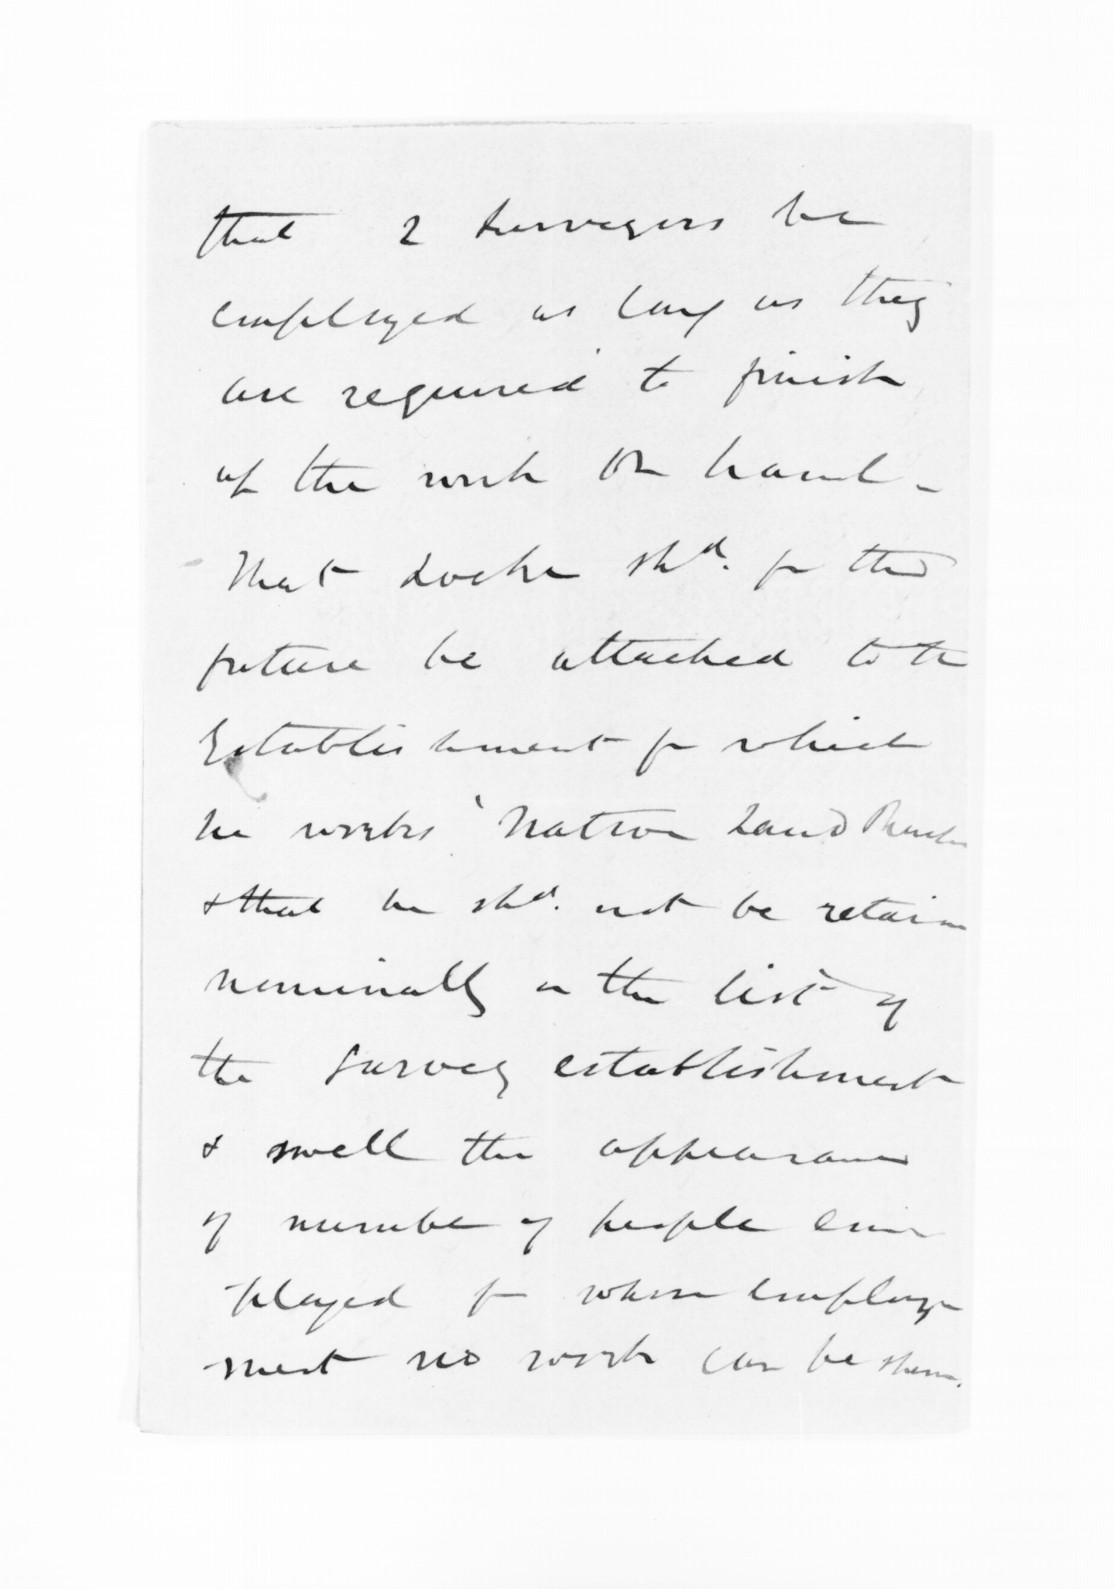 that 2 Surveyors be
employed as long as they
are required to finish
up the work on hand -
That Locke shd. for the
future be attached to the
Establishment for which
he works 'Native Land Purchase
& that he shd. not be retain
nominally on the list of
the Survey establishment
& swell the appearance
of number of people em
ployed for whose employ
ment no work can be shown.